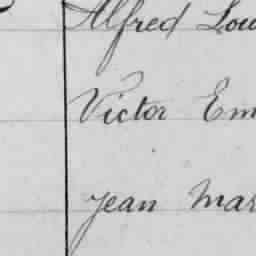 Alfred Lou
Victor Em
Jean Mar